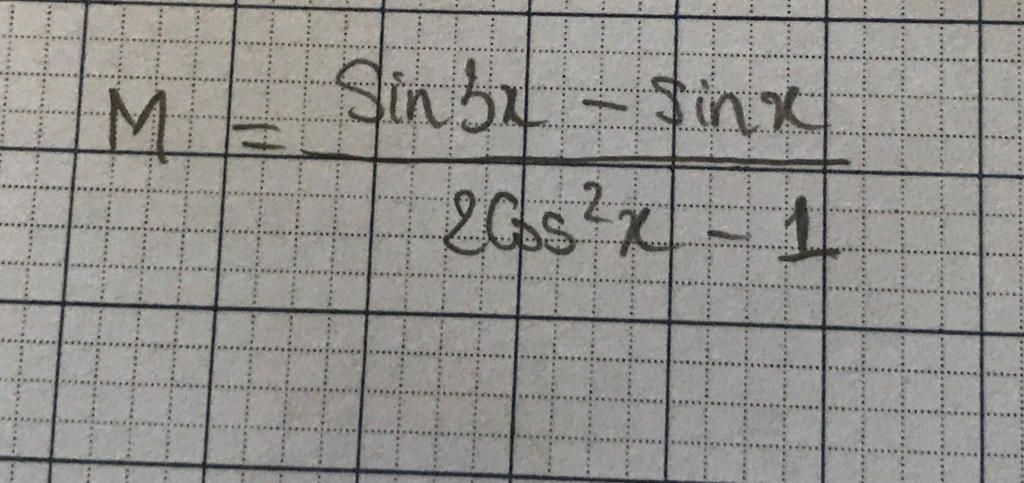 M = Sin 3x - sin x / 2Cos²x - 1